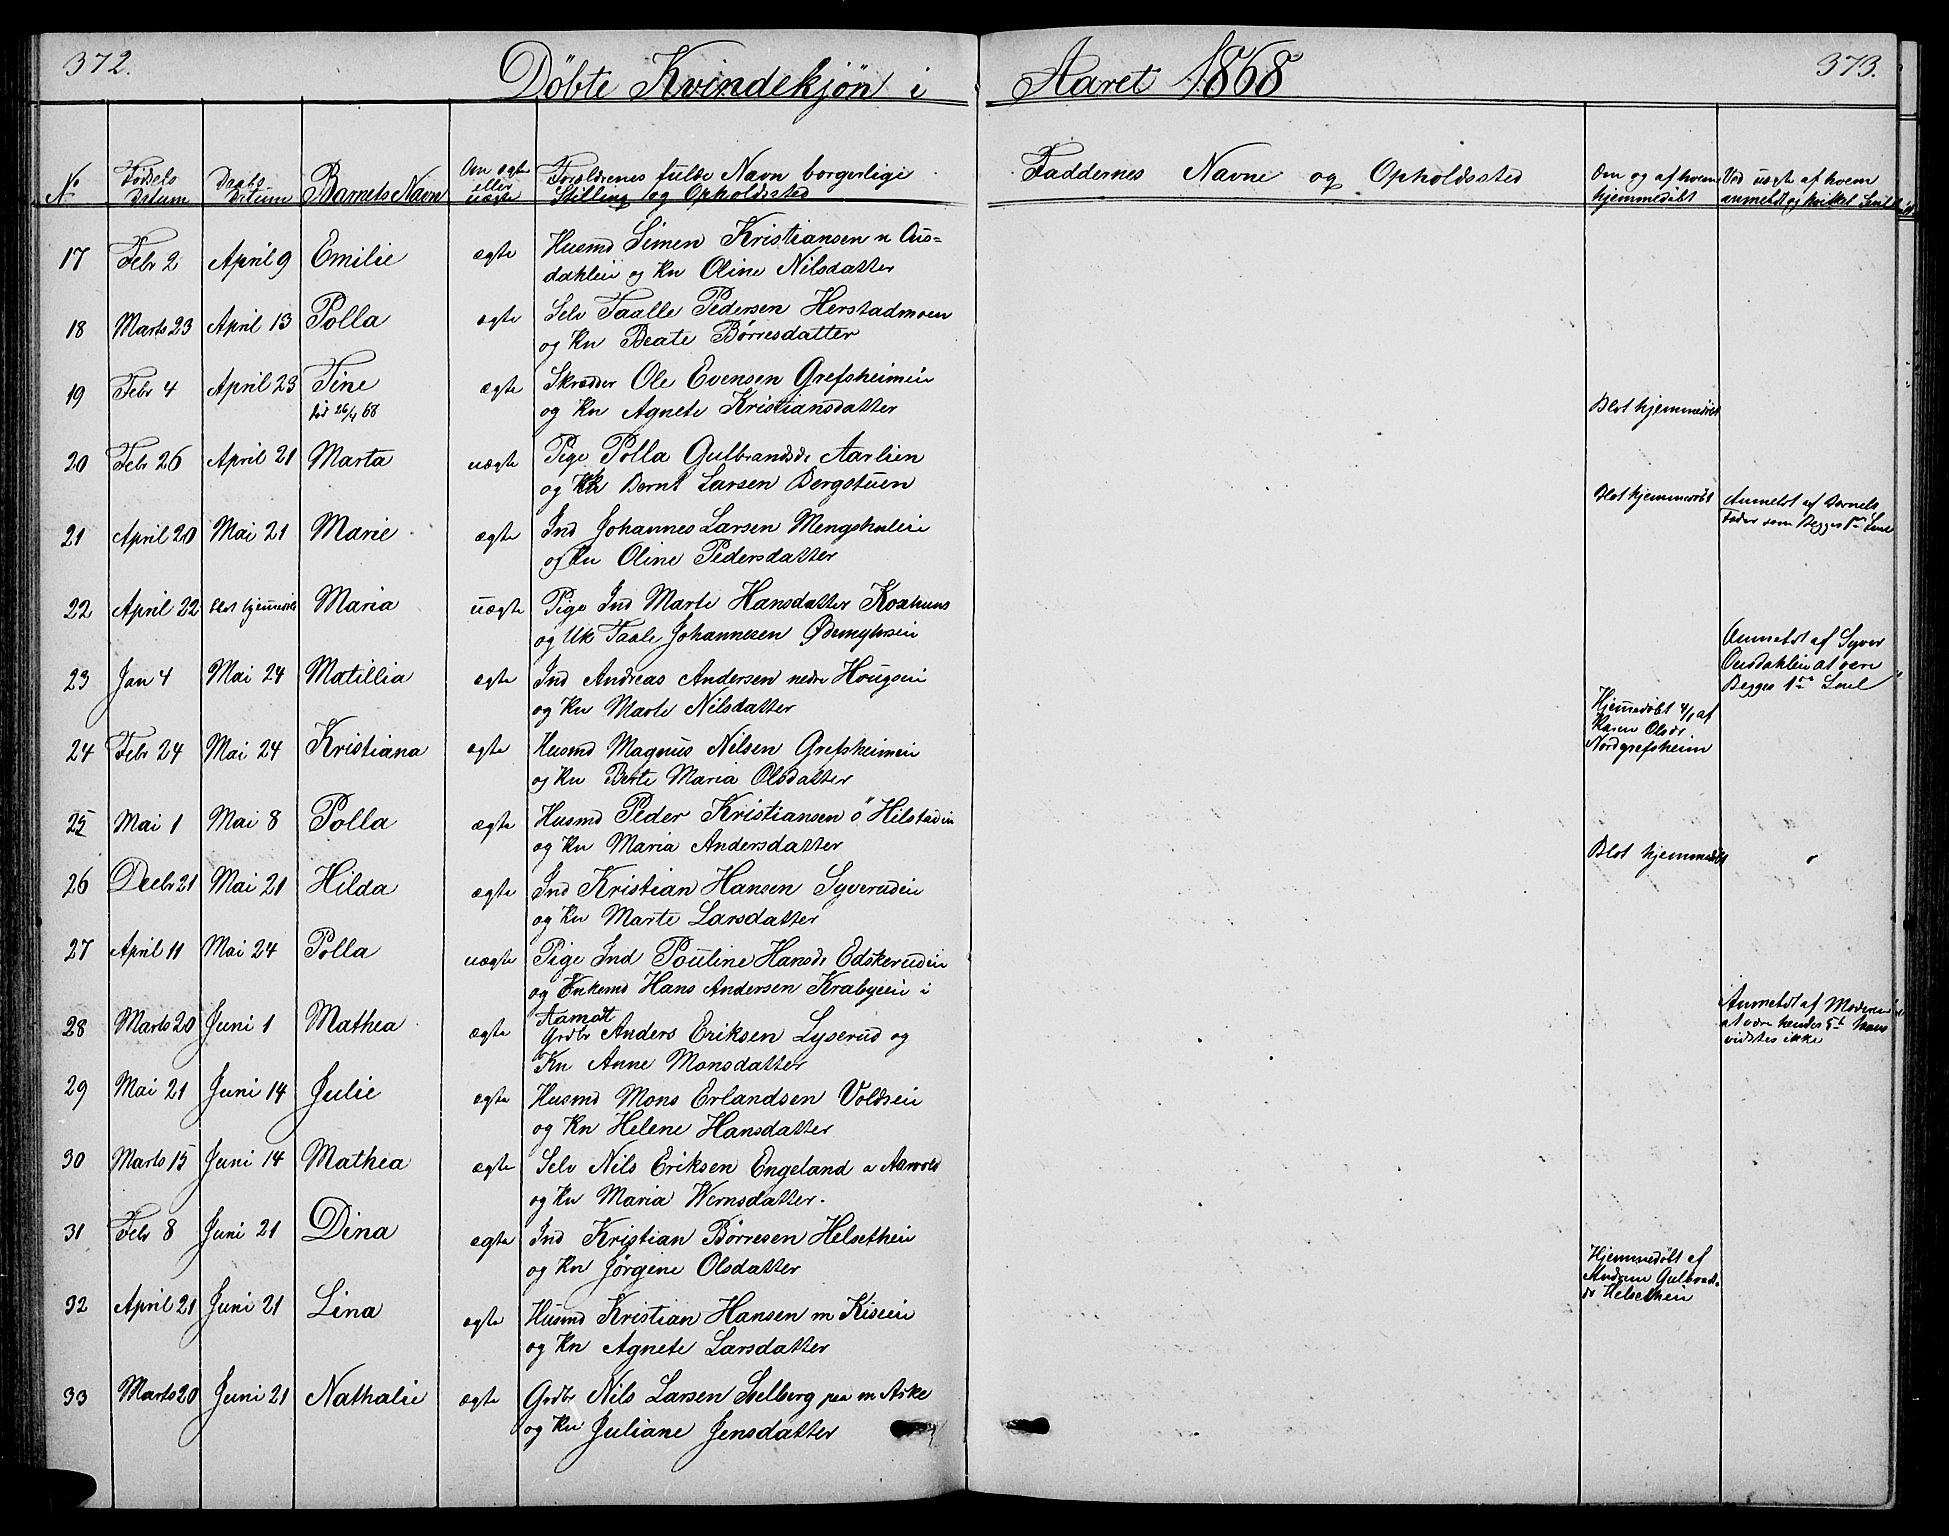 372.
Døbte Kvindekjøn i Aaret 1868
373.
No Fødsels Datum Daabs Datum Barnets Navn Om ægte eller uægte Forældrenes fulde Navn borgerlige Stilling og Opholdssted Faddernes Navne og Opholdssted Om og af hvem hjemmedøbt Ved uægte af hvem anmeldt og hvilket
17 Febr 2 April 9 Emilie ægte Husmd Simen Kristiansen n Ous-
dahlen og Kn Oline Nilsdatter
18 Marts 23 April 13 Polla ægte Selv Taalle Pedersen Herstadmoen
og Kn Beate Børresdatter
19 Febr 4 April 23 Tine ægte Skrædder Ole Evensen Grefsheimein
død 26/4 68 og Kn Agnete Kristiansdatter
Blot hjemmedøbt
20 Febr 26 April 21 Marta uægte Pige Polla Gulbrandsdr Aarlien
og Bernt Larsen Bergstuen
Blot hjemmedøbt
Anmeldt af Barnets
Fader som Begges 1ste
21 April 20 Mai 21 Marie ægte Ind Johannes Larsen
og Kn Oline Pedersdatter
22 April 22 blot hjemmedøbt Maria uægte Pige Ind Marte Hansdatter
og Uk Taale Johannesen
Anmeldt af Syver
Ousdahlen at være
Begges 1ste
23 Jan 4 Mai 24 Matillia ægte Ind Andreas Andersen nedre Hougsein
og Kn Marte Nilsdatter
Hjemmedøbt 4/1 af
Karen Olsdr
Nordgrefsheim
24 Febr 24 Mai 24 Kristiana ægte Husmd Magnus Nilsen Grefsheimein
og Kn Berte Maria Olsdatter
25 Mai 1 Mai 8 Polla ægte Husmd Peder Kristiansen ø Hilstadein
og Kn Maria Andersdatter
Blot hjemmedøbt
26 Decbr 21 Mai 21 Hilda ægte Ind Kristian Hansen Syverudein
og Kn Marte Larsdatter
27 April 11 Mai 24 Polla uægte Pige Ind Pouline Hansdr Edskerudein
og Enkemd Hans Andersen Krabyein i
Aamodt
Anmeldt af Moderen
at være hendes 5t hans
vidstes ikke
28 Marts 20 Juni 1 Mathea ægte Grdbr Anders Eriksen Lyserud og
Kn Anne Monsdatter
29 Mai 21 Juni 14 Julie ægte Husmd Mons Erlandsen Voldsein
og Kn Helene Hansdatter
30 Marts 15 Juni 14 Mathea ægte Selv Nils Eriksen Engeland a Aarvold
og Kn Maria Wernsdatter.
31 Febr 8 Juni 21 Dina ægte Ind Kristian Børresen Helsethein
og Kn Jørgine Olsdatter
Hjemmedøbt af
Andrine Gulbrands-
dr Helsethein
32 April 21 Juni 21 Lina ægte Husmd Kristian Hansen m Kisein
og Kn Agnete Larsdatter
33 Marts 20 Juni 21 Nathalie ægte Grdbr Nils Larsen Selberg paa m Aske
og Kn Juliane Jensdatter